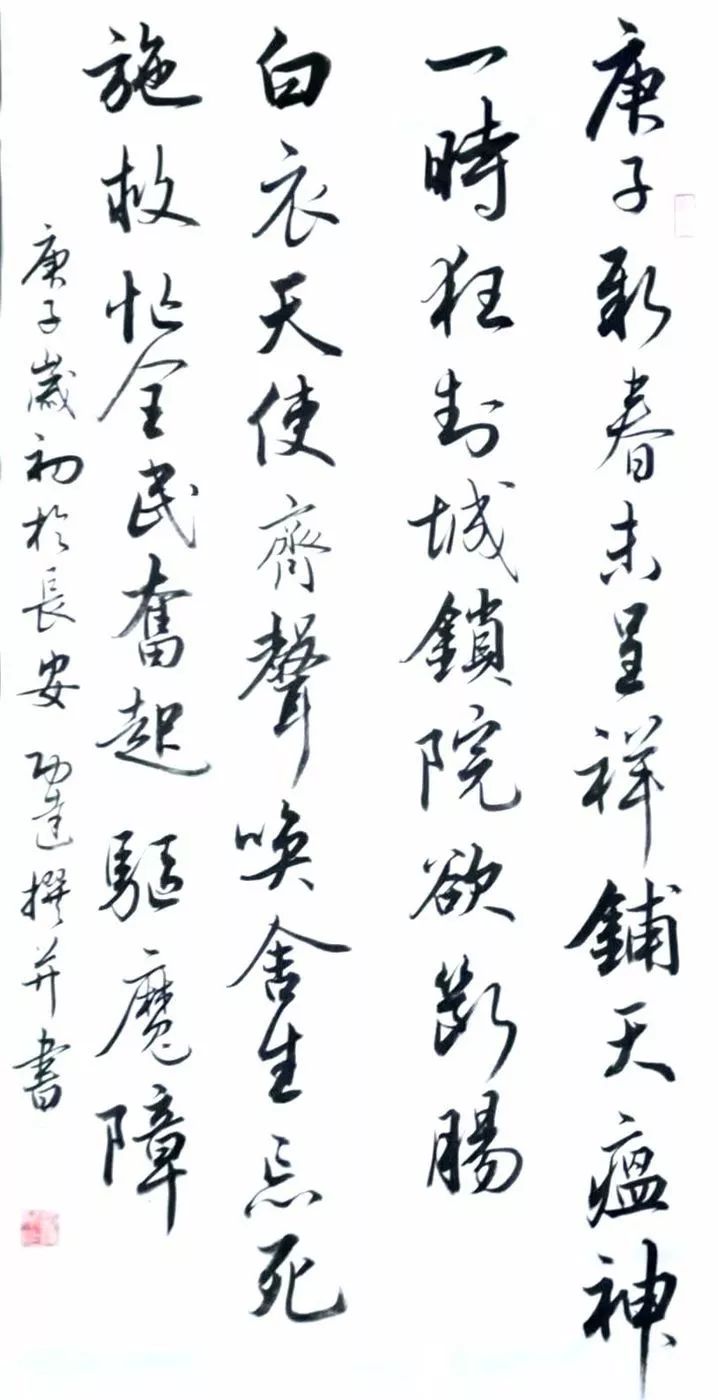 庚子新春未呈祥鋪天瘟神
一時狂封城鎖院欲斷腸
白衣天使齊聲喚舍生忘死
施救忙全民奮起驅魔障
庚子歲初於長安功達撰并書